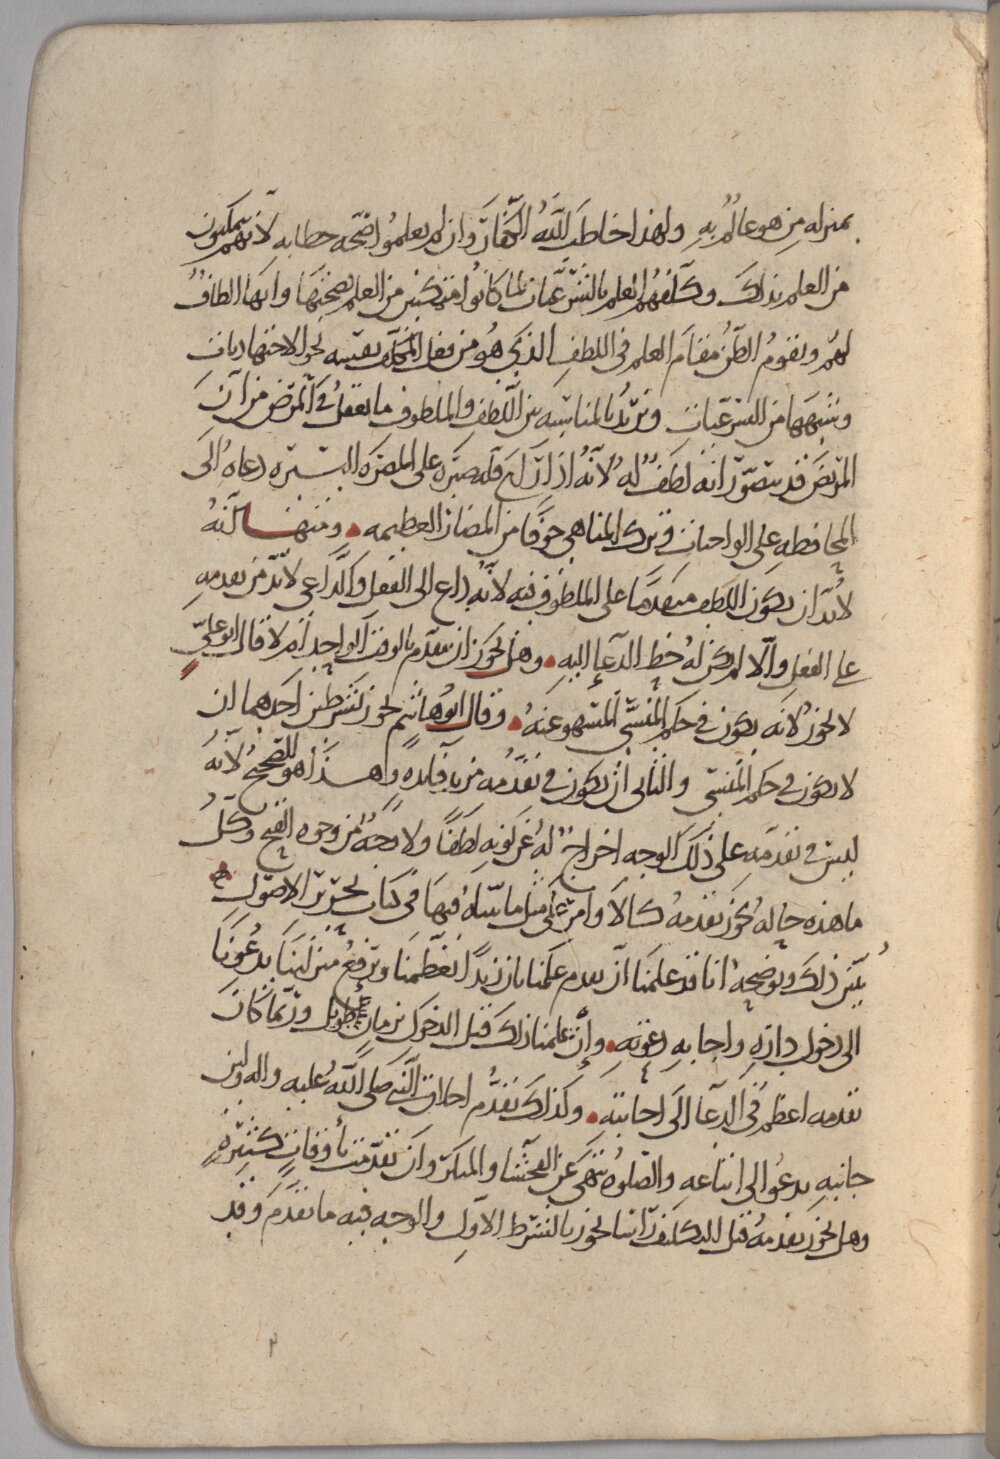 بمنزله من هو عالم به ولهذا خاطب الله الكفار وان لم يعلموا صحه خطابه لانهم متمكنون
من العلم بذلك وكلفهم العلم بالشرعيات لما كانوا متمكنين من العلم بصحتها وانها الطاف
لهم ويقوم الظن مقام العلم في اللطف الذي هو من فعل المكلف نفسه نحو الاجتهاديات
وشبهها من الشرعيات ونريد بالمناسبه بين اللطف والملطوف ما نعقل في المرض من ان
المريض قد يتصور انه لطف له لانه اذا راى قله صبره على المضره اليسيره دعاه الى
المحافظه على الواجبات وترك المناهي خوفا من المضار العظيمه ومنها انه
لابد ان يكون اللطف متقدما على الملطوف فيه لانه داع الى الفعل والداعي لابد من تقدمه
على الفعل والا لم يكن له حظ الدعا اليه وهل يجوز ان يتقدم بالوقت الواحد ام لا قال ابو علي
لا يجوز لانه يكون في حكم المنسي المسهو عنه وقال ابو هاشم يجوز بشرطين احدهما ان
لا يكون في حكم المنسي والثاني ان يكون في تقدمه مزيد فايده وهذا هو الصحيح لانه
ليس في تقدمه على ذلك الوجه اخراج له عن كونه لطفا ولا وجه من وجوه القبح وكل
ما هذه حاله يجوز تقدمه على مثل ما بيناه فيها في كتاب تحرير الاصول
يبين ذلك ويوضحه انا قد علمنا ان تقدم علمنا بان زيدا يعظمنا ويرفع منزلتنا يدعونا
الى دخول داره واجابه دعوته وان علمنا ذلك قبل الدخول بزمان طويل وربما كان
تقدمه اعظم في الدعا الى اجابته وكذلك تقدم اخلاق النبي صلى الله عليه واله ولين
جانبه يدعو الى اتباعه والصلوه تنهى عن الفحشا والمنكر وان تقدمت باوقات كثيره
وهل يجوز تقدمه قبل التكليف انما يجوز بالشرط الاول والوجه فيه ما تقدم وقد